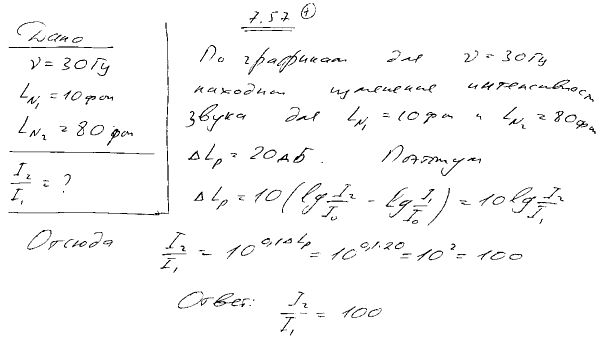 7.57
Дано
ν = 30 Гц
L_N₁ = 10 фон
L_N₂ = 80 фон
I₂/I₁ = ?
По графикам для ν = 30 Гц
находим изменение интенсивност
звука для L_N₁ = 10 фон и L_N₂ = 80 фон
ΔL_p = 20 дБ. Поэтому
ΔL_p = 10 (lg I₂/I₀ - lg I₁/I₀) = 10 lg I₂/I₁
Отсюда I₂/I₁ = 10^(0,1ΔL_p) = 10^(0,1·20) = 10² = 100
Ответ: I₂/I₁ = 100